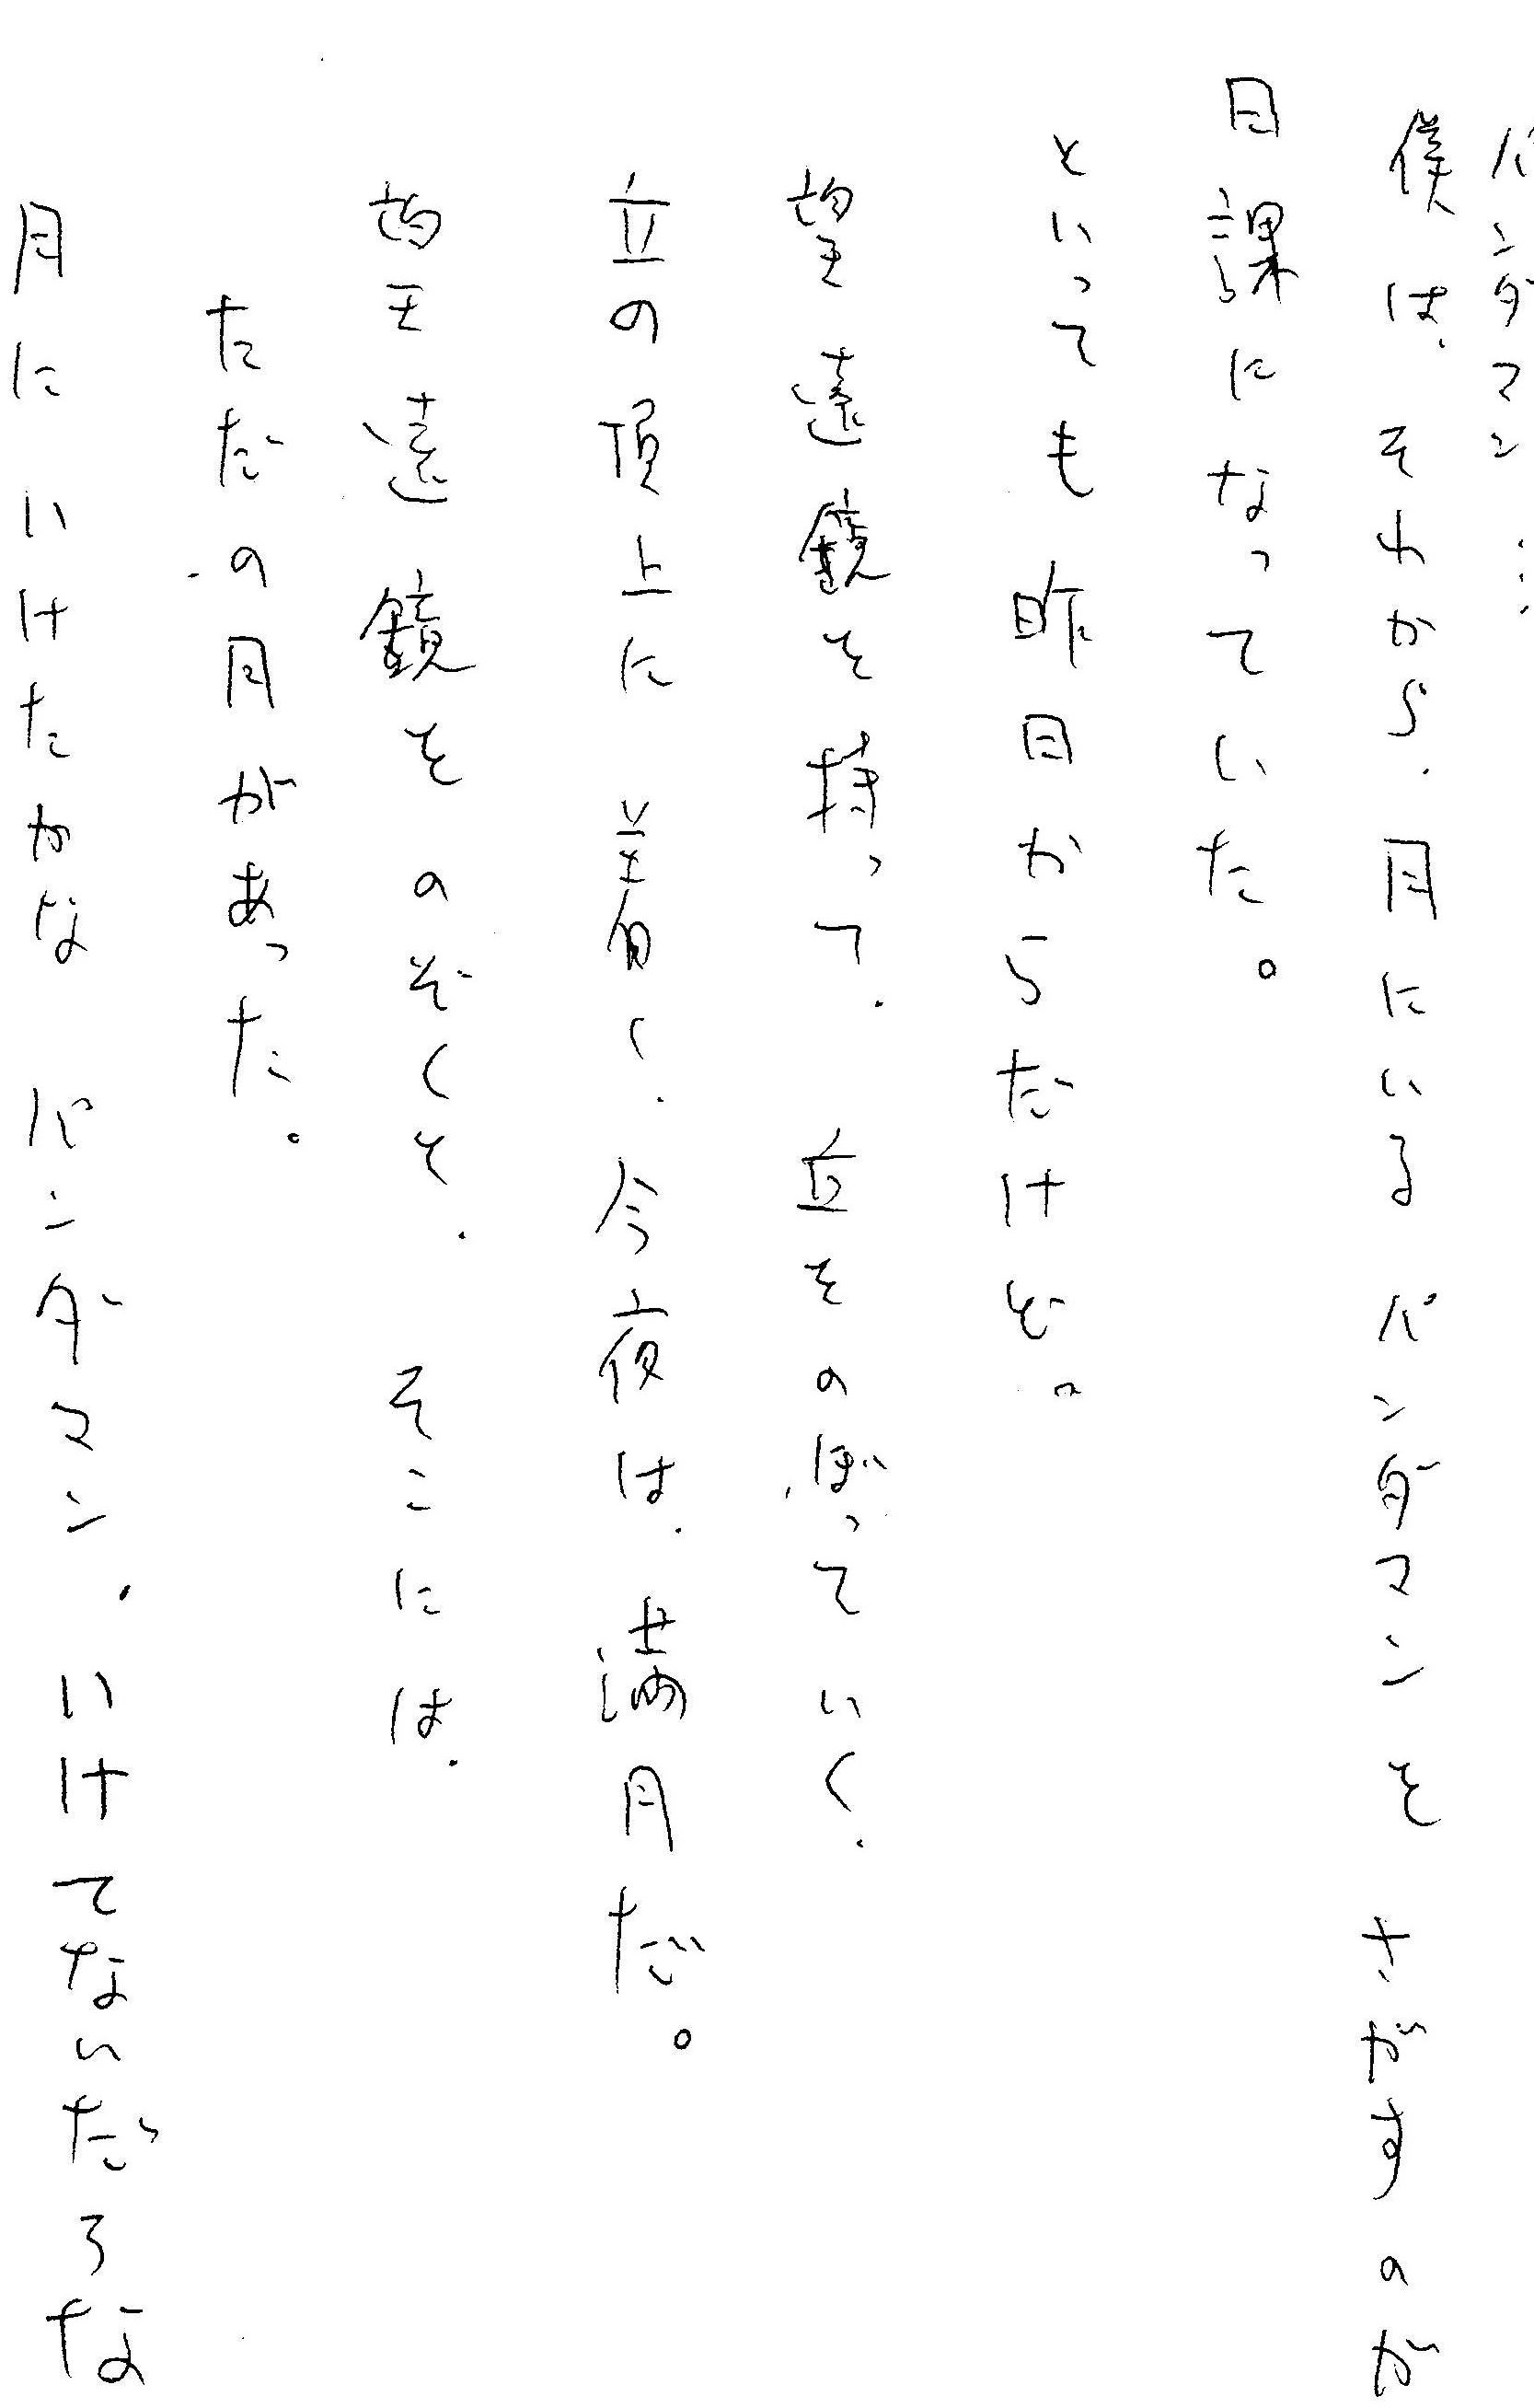 パンダマン…
僕は、それから、月にいるパンダマンをさがすのが
日課になっていた。
といっても昨日からだけど。
望遠鏡を持って、丘をのぼっていく、
丘の頂上に着く、今夜は、満月だ。
望遠鏡をのぞくと、そこには、
ただの月があった。
月にいけたかな パンダマン、いけてないだろな